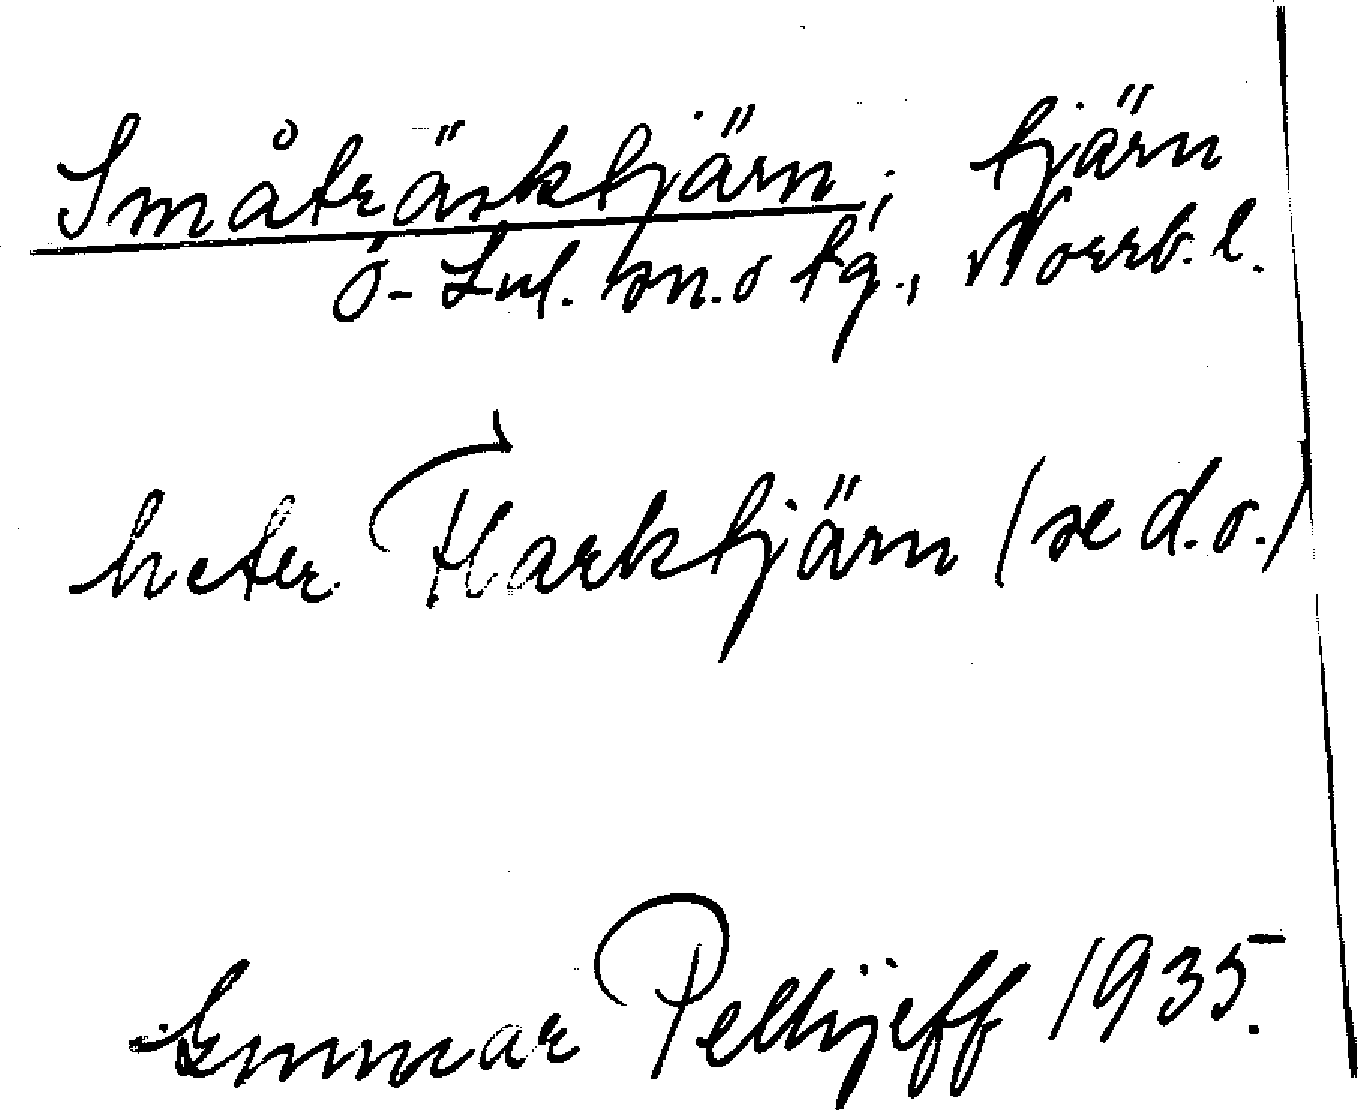 Småträsktjärn; tjärn
Ö-Lul. sn. o tg., Norrb. l.
heter Harktjärn (se d.o.)
Gunnar Pellijeff 1935.